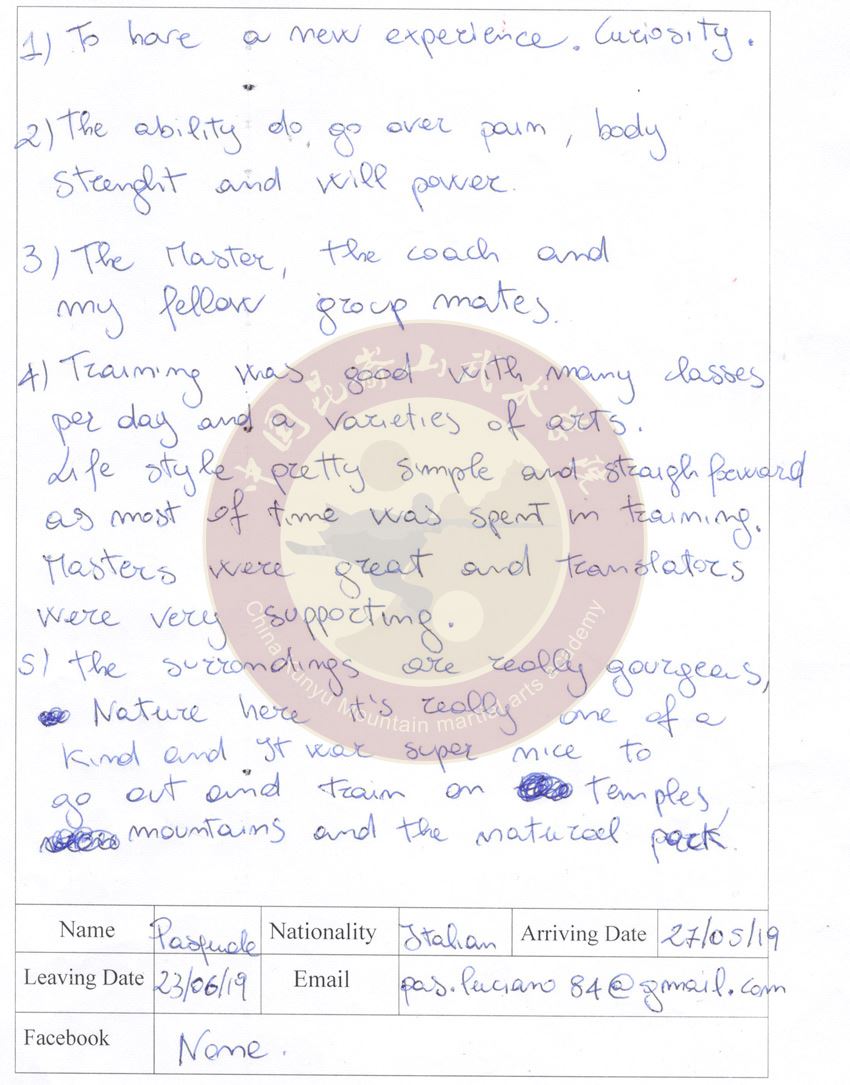 1) To have a new experience. Curiosity.
2) The ability do go over pain, body
strenght and will power.
3) The Master, the coach and
my fellow group mates.
4) Training was good with many classes
per day and a varieties of arts.
Life style pretty simple and straighforward
as most of time was spent in training.
Masters were great and translators
were very supporting.
5) The surrondings are really gourgeous,
Nature here it's really one of a
kind and It was super nice to
go out and train on temples,
mountains and the natural park.
中国昆嵛山武术学院
China Kunyu Mountain martial arts academy
Name Pasquale Nationality Italian Arriving Date 27/05/19
Leaving Date 23/06/19 Email pas.luciano84@gmail.com
Facebook None.